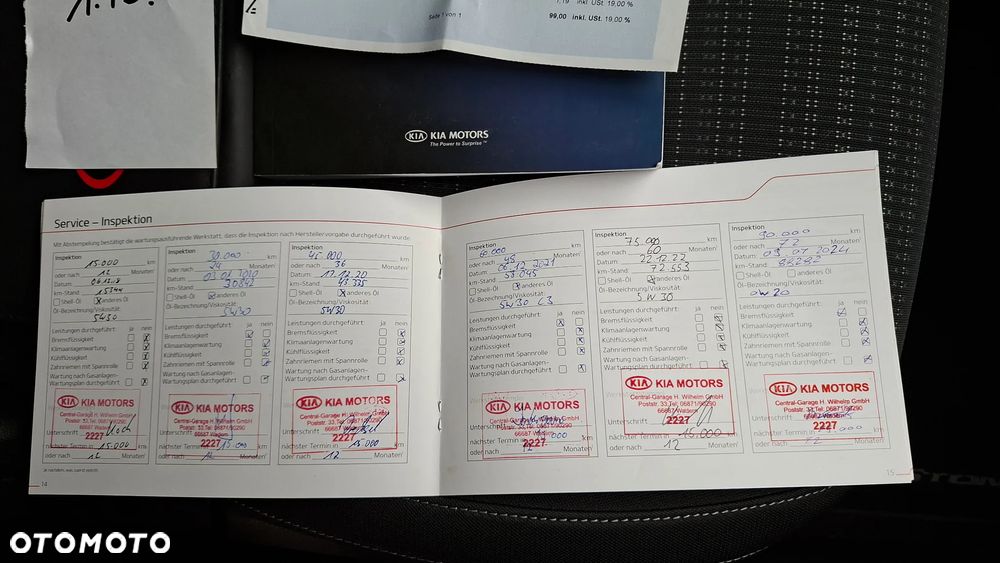 1,19 inkl. USt. 19,00 %
Seite 1 von 1
99,00 inkl. USt. 19,00 %
KIA KIA MOTORS
The Power to Surprise™
Service – Inspektion
Mit Abstempelung bestätigt die wartungsausführende Werkstatt, dass die Inspektion nach Herstellervorgabe durchgeführt wurde.
Inspektion
15.000 km
oder nach 12 Monaten¹
Datum
km-Stand 15744
Shell-Öl X anderes Öl
Öl-Bezeichnung/Viskosität:
5W30
Leistungen durchgeführt: ja nein
Bremsflüssigkeit
Klimaanlagenwartung
Kühlflüssigkeit
Zahnriemen mit Spannrolle
Wartung nach Gasanlagen-
Wartungsplan durchgeführt
KIA KIA MOTORS
Central-Garage H. Wilhelm GmbH
Poststr. 33, Tel. 06871/90290
66687 Wadern
Unterschrift
2227
nächster Termin in 15.000 km
oder nach 12 Monaten¹
Inspektion
30.000 km
oder nach 24 Monaten¹
Datum
km-Stand 30842
Shell-Öl anderes Öl
Öl-Bezeichnung/Viskosität:
5W30
Leistungen durchgeführt: ja nein
Bremsflüssigkeit
Klimaanlagenwartung
Kühlflüssigkeit
Zahnriemen mit Spannrolle
Wartung nach Gasanlagen-
Wartungsplan durchgeführt
KIA KIA MOTORS
Central-Garage H. Wilhelm GmbH
Poststr. 33, Tel. 06871/90290
66687 Wadern
Unterschrift
2227
nächster Termin in 15.000 km
oder nach 12 Monaten¹
Inspektion
45.000 km
oder nach 36 Monaten¹
Datum 17.12.20
km-Stand 43 325
Shell-Öl X anderes Öl
Öl-Bezeichnung/Viskosität:
5W30
Leistungen durchgeführt: ja nein
Bremsflüssigkeit
Klimaanlagenwartung
Kühlflüssigkeit
Zahnriemen mit Spannrolle
Wartung nach Gasanlagen-
Wartungsplan durchgeführt
KIA KIA MOTORS
Central-Garage H. Wilhelm GmbH
Poststr. 33, Tel. 06871/90290
66687 Wadern
Unterschrift
2227
nächster Termin in 15.000 km
oder nach 12 Monaten¹
14
Inspektion
60.000 km
oder nach 48 Monaten¹
Datum 06.12.2021
km-Stand 57 045
Shell-Öl X anderes Öl
Öl-Bezeichnung/Viskosität:
5W30 C3
Leistungen durchgeführt: ja nein
Bremsflüssigkeit
Klimaanlagenwartung
Kühlflüssigkeit
Zahnriemen mit Spannrolle
Wartung nach Gasanlagen-
Wartungsplan durchgeführt
KIA KIA MOTORS
Central-Garage H. Wilhelm GmbH
2227
nächster Termin in km
oder nach 12 Monaten¹
Inspektion
75.000 km
oder nach 60 Monaten¹
Datum 22.12.22
km-Stand 72.553
Shell-Öl anderes Öl
Öl-Bezeichnung/Viskosität:
5W30
Leistungen durchgeführt: ja nein
Bremsflüssigkeit
Klimaanlagenwartung
Kühlflüssigkeit
Zahnriemen mit Spannrolle
Wartung nach Gasanlagen-
Wartungsplan durchgeführt
KIA KIA MOTORS
Central-Garage H. Wilhelm GmbH
Poststr. 33, Tel. 06871/90290
66687 Wadern
Unterschrift
2227
nächster Termin in 15.000 km
oder nach 12 Monaten¹
Inspektion
90.000 km
oder nach 72 Monaten¹
Datum 09.07.2024
km-Stand 88282
Shell-Öl anderes Öl
Öl-Bezeichnung/Viskosität:
0W20
Leistungen durchgeführt: ja nein
Bremsflüssigkeit
Klimaanlagenwartung
Kühlflüssigkeit
Zahnriemen mit Spannrolle
Wartung nach Gasanlagen-
Wartungsplan durchgeführt
KIA KIA MOTORS
Central-Garage H. Wilhelm GmbH
Poststr. 33, Tel. 06871/90290
Unterschrift
2227
nächster Termin in km
oder nach 12 Monaten¹
15
OTOMOTO